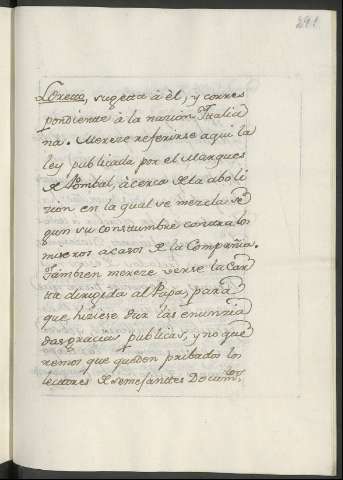 291
Loreto, sugeta à èl, y corres
pondiente à la nazion Italia
na. Mereze referirse aqui la
ley publicada por el Marques
de Pombal, àcerca de la aboli
zion en la qual se mezcla se
gun su constumbre contra los
miseros acasos de la Compañia.
Tambien mereze verse la Car
ta dirigida al Papa, para
que hiziese dar las enunzia
das grazias publicas, y no que
remos que queden pribados los
lectores de semejanttes Docum.tos